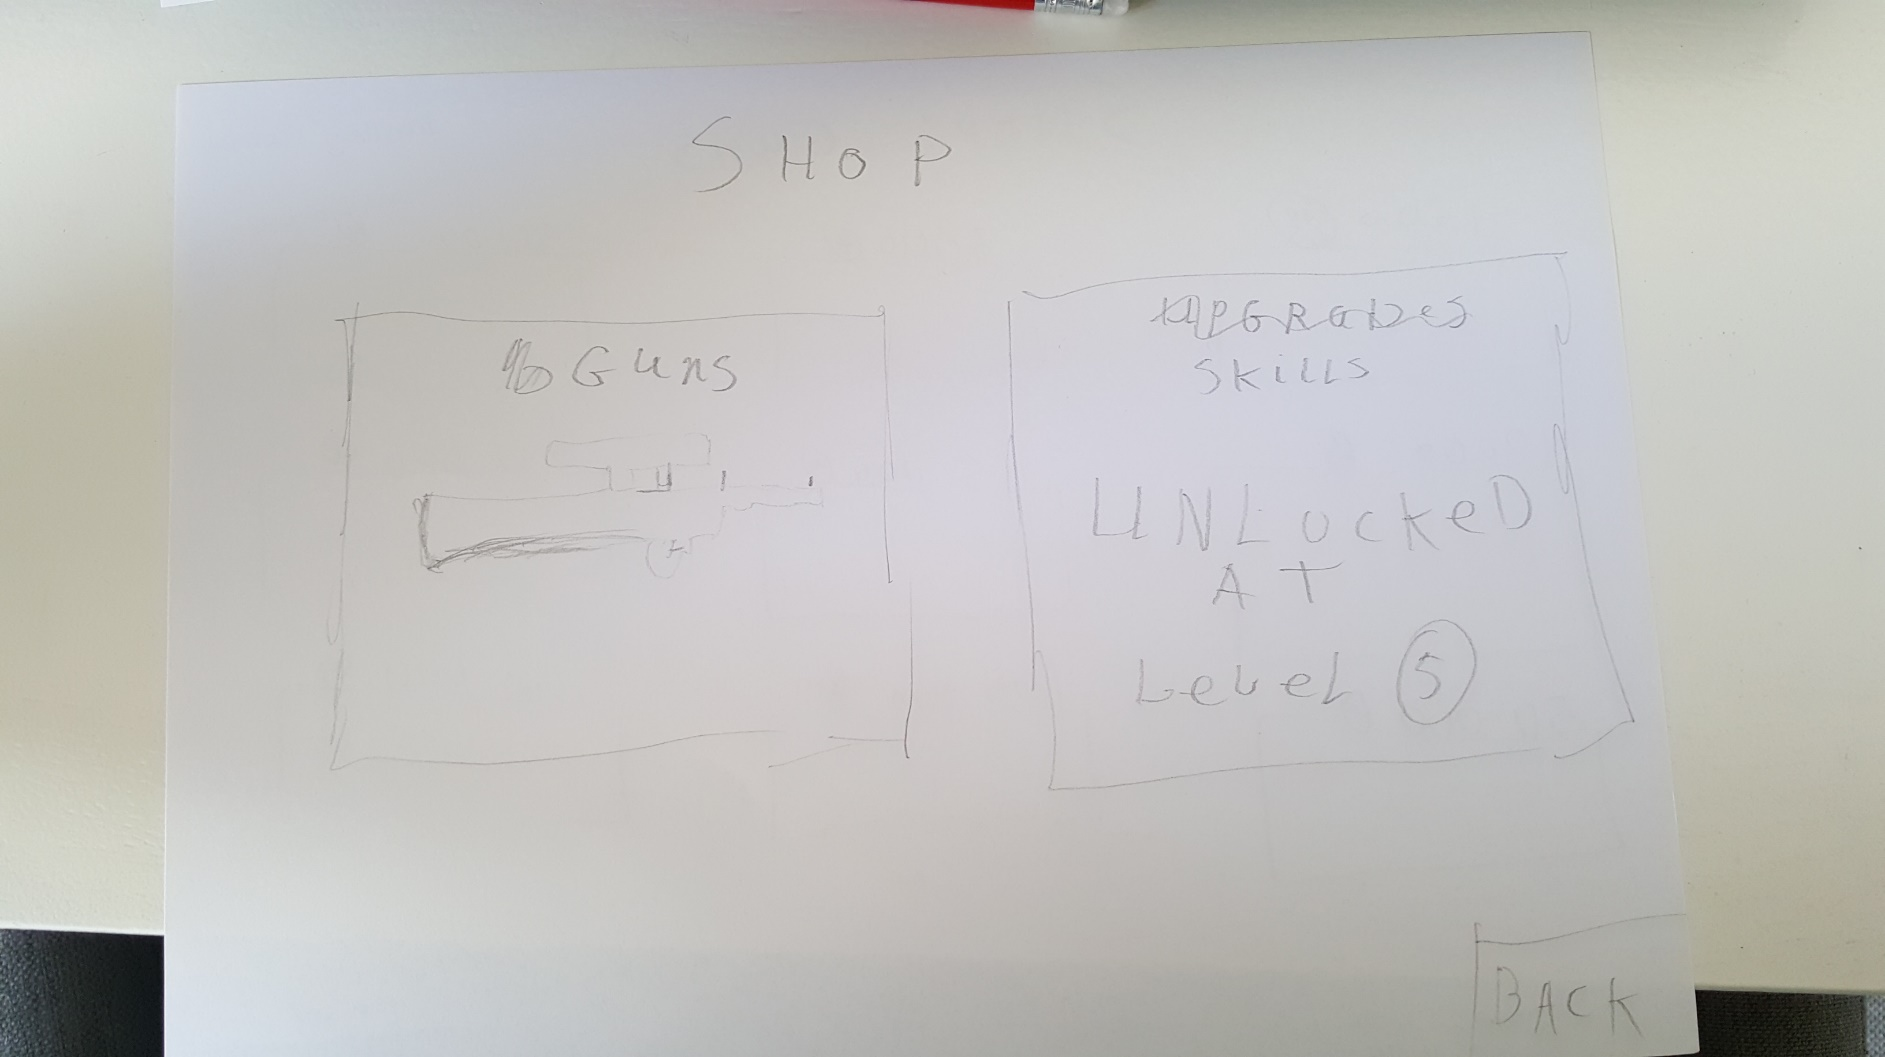 SHOP
Guns
UPGRADES
SKILLS
UNLOCKED
AT
LEVEL 5
BACK